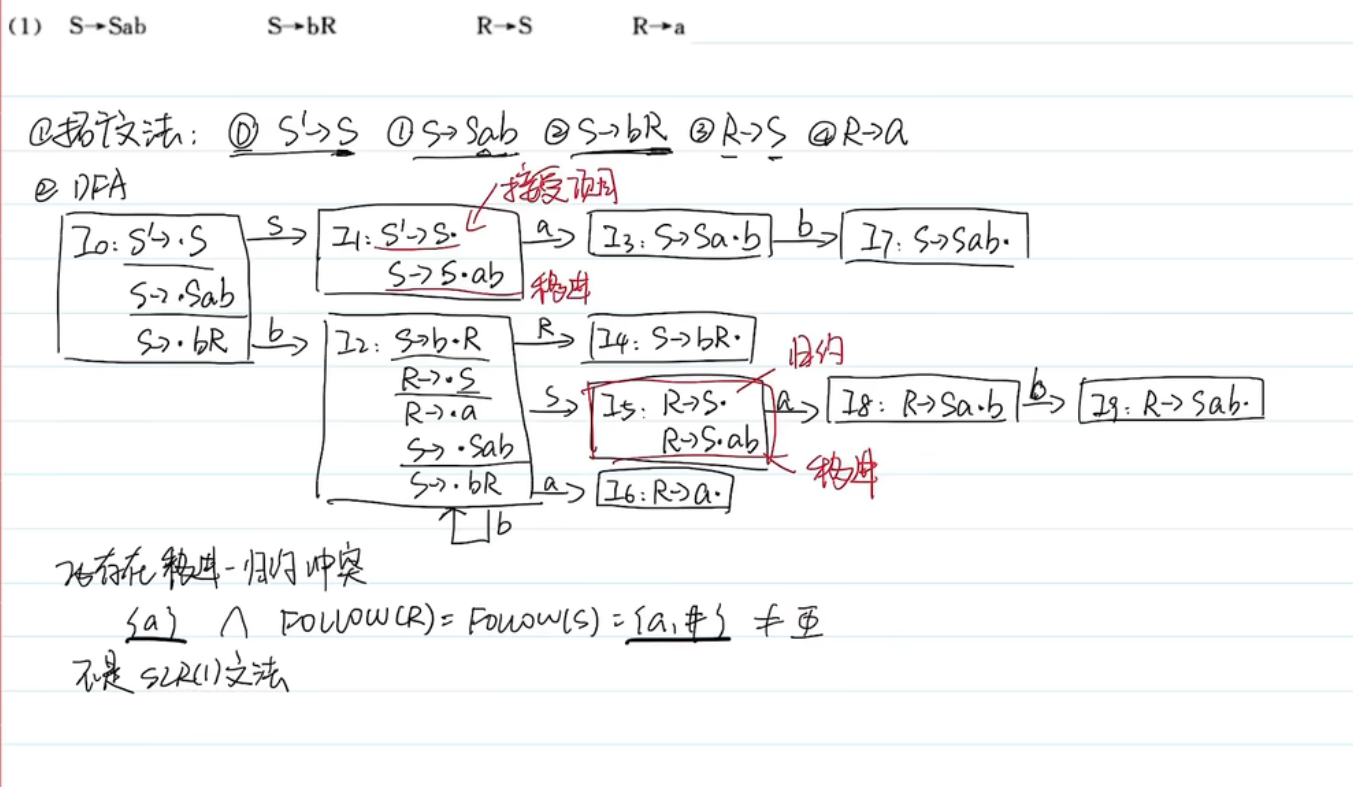 (1) S→Sab S→bR R→S R→a
①拓广文法: ⓪ S'→S ① S→Sab ② S→bR ③ R→S ④ R→a
② DFA
接受项目
I0: S'→·S S I1: S'→S· a I3: S→Sa·b b I7: S→Sab·
S→·Sab S→S·ab 移进
S→·bR b I2: S→b·R R I4: S→bR·
归约
R→·S
R→·a S I5: R→S· a I8: R→Sa·b b I9: R→Sab·
S→·Sab R→S·ab 移进
S→·bR a I6: R→a·
b
I5存在移进-归约冲突
{a} ∧ FOLLOW(R)=FOLLOW(S)={a,#} ≠
不是SLR(1)文法